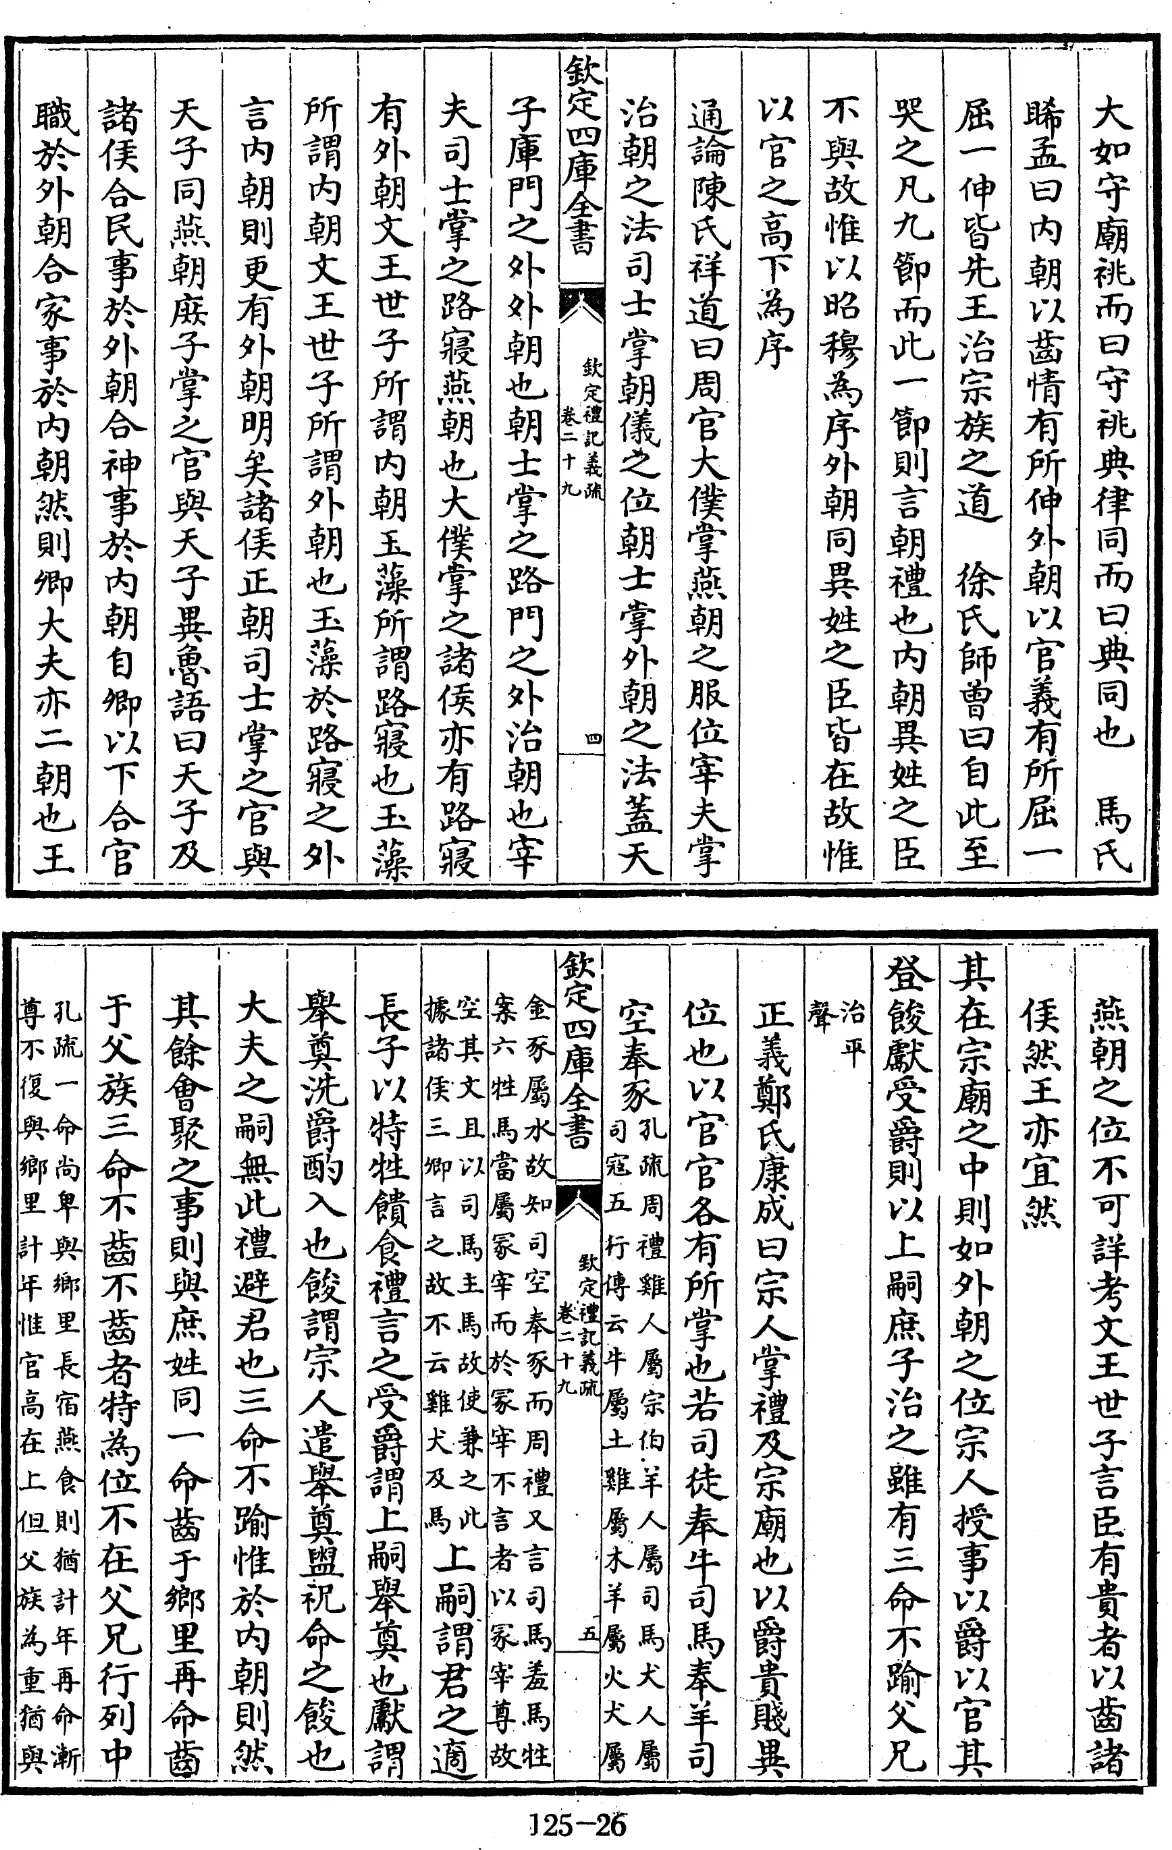 大如守廟祧而曰守祧典律同而曰典同也　馬氏
睎孟曰内朝以齒情有所伸外朝以官義有所屈一
屈一伸皆先王治宗族之道　徐氏師曾曰自此至
哭之凡九節而此一節則言朝禮也内朝異姓之臣
不與故惟以昭穆為序外朝同異姓之臣皆在故惟
以官之高下為序
通論陳氏祥道曰周官大僕掌燕朝之服位宰夫掌
治朝之法司士掌朝儀之位朝士掌外朝之法蓋天
欽定四庫全書
欽定禮記義疏
卷二十九
四
子庫門之外外朝也朝士掌之路門之外治朝也宰
夫司士掌之路寢燕朝也大僕掌之諸侯亦有路寢
有外朝文王世子所謂内朝玉藻所謂路寢也玉藻
所謂内朝文王世子所謂外朝也玉藻於路寢之外
言内朝則更有外朝明矣諸侯正朝司士掌之官與
天子同燕朝庶子掌之官與天子異魯語曰天子及
諸侯合民事於外朝合神事於内朝自卿以下合官
職於外朝合家事於内朝然則卿大夫亦二朝也王
燕朝之位不可詳考文王世子言臣有貴者以齒諸
侯然王亦宜然
其在宗廟之中則如外朝之位宗人授事以爵以官其
登餕獻受爵則以上嗣庶子治之雖有三命不踰父兄
治平
聲
正義鄭氏康成曰宗人掌禮及宗廟也以爵貴賤異
位也以官官各有所掌也若司徒奉牛司馬奉羊司
空奉豕
孔疏周禮雞人屬宗伯羊人屬司馬犬人屬
司寇五行傳云牛屬土雞屬木羊屬火犬屬
欽定四庫全書
欽定禮記義疏
卷二十九
五
金豕屬水故知司空奉豕而周禮又言司馬羞馬牲
案六牲馬當屬冢宰而於冢宰不言者以冢宰尊故
空其文且以司馬主馬故使兼之此
據諸侯三卿言之故不云雞犬及馬
上嗣謂君之適
長子以特牲饋食禮言之受爵謂上嗣舉奠也獻謂
舉奠洗爵酌入也餕謂宗人遣舉奠盥祝命之餕也
大夫之嗣無此禮避君也三命不踰惟於内朝則然
其餘會聚之事則與庶姓同一命齒于鄉里再命齒
于父族三命不齒不齒者特為位不在父兄行列中
孔疏一命尚卑與鄉里長宿燕食則猶計年再命漸
尊不復與鄉里計年惟官高在上但父族為重猶與
125-26